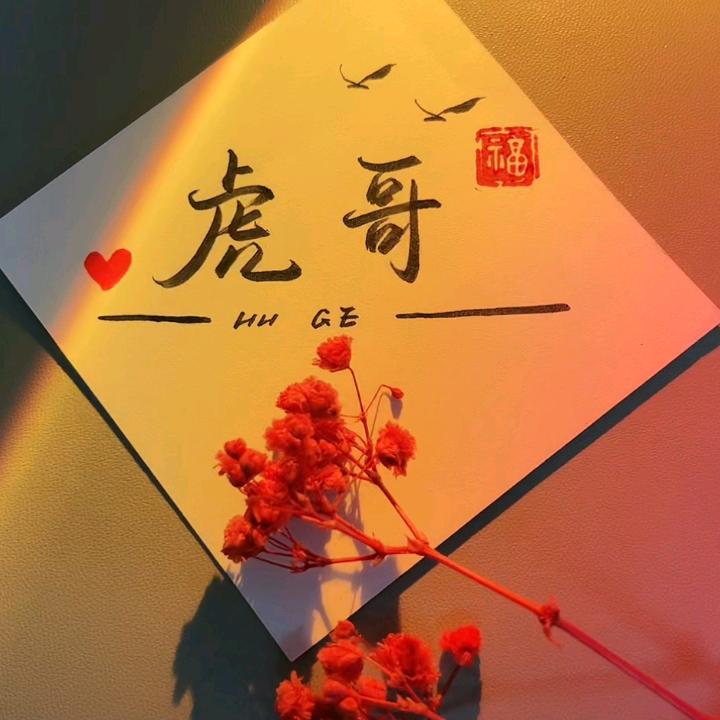 福
虎哥
HU GE